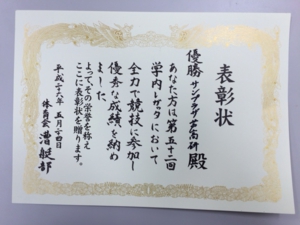 表彰状
優勝 サンプラザ芸高研 殿
あなた方は第五十二回
学内レガッタにおいて
全力で競技に参加し
優秀な成績を納め
ました
よって、その栄誉を称え
ここに表彰状を贈ります。
平成二十六年 五月二十四日
体育会 漕艇部